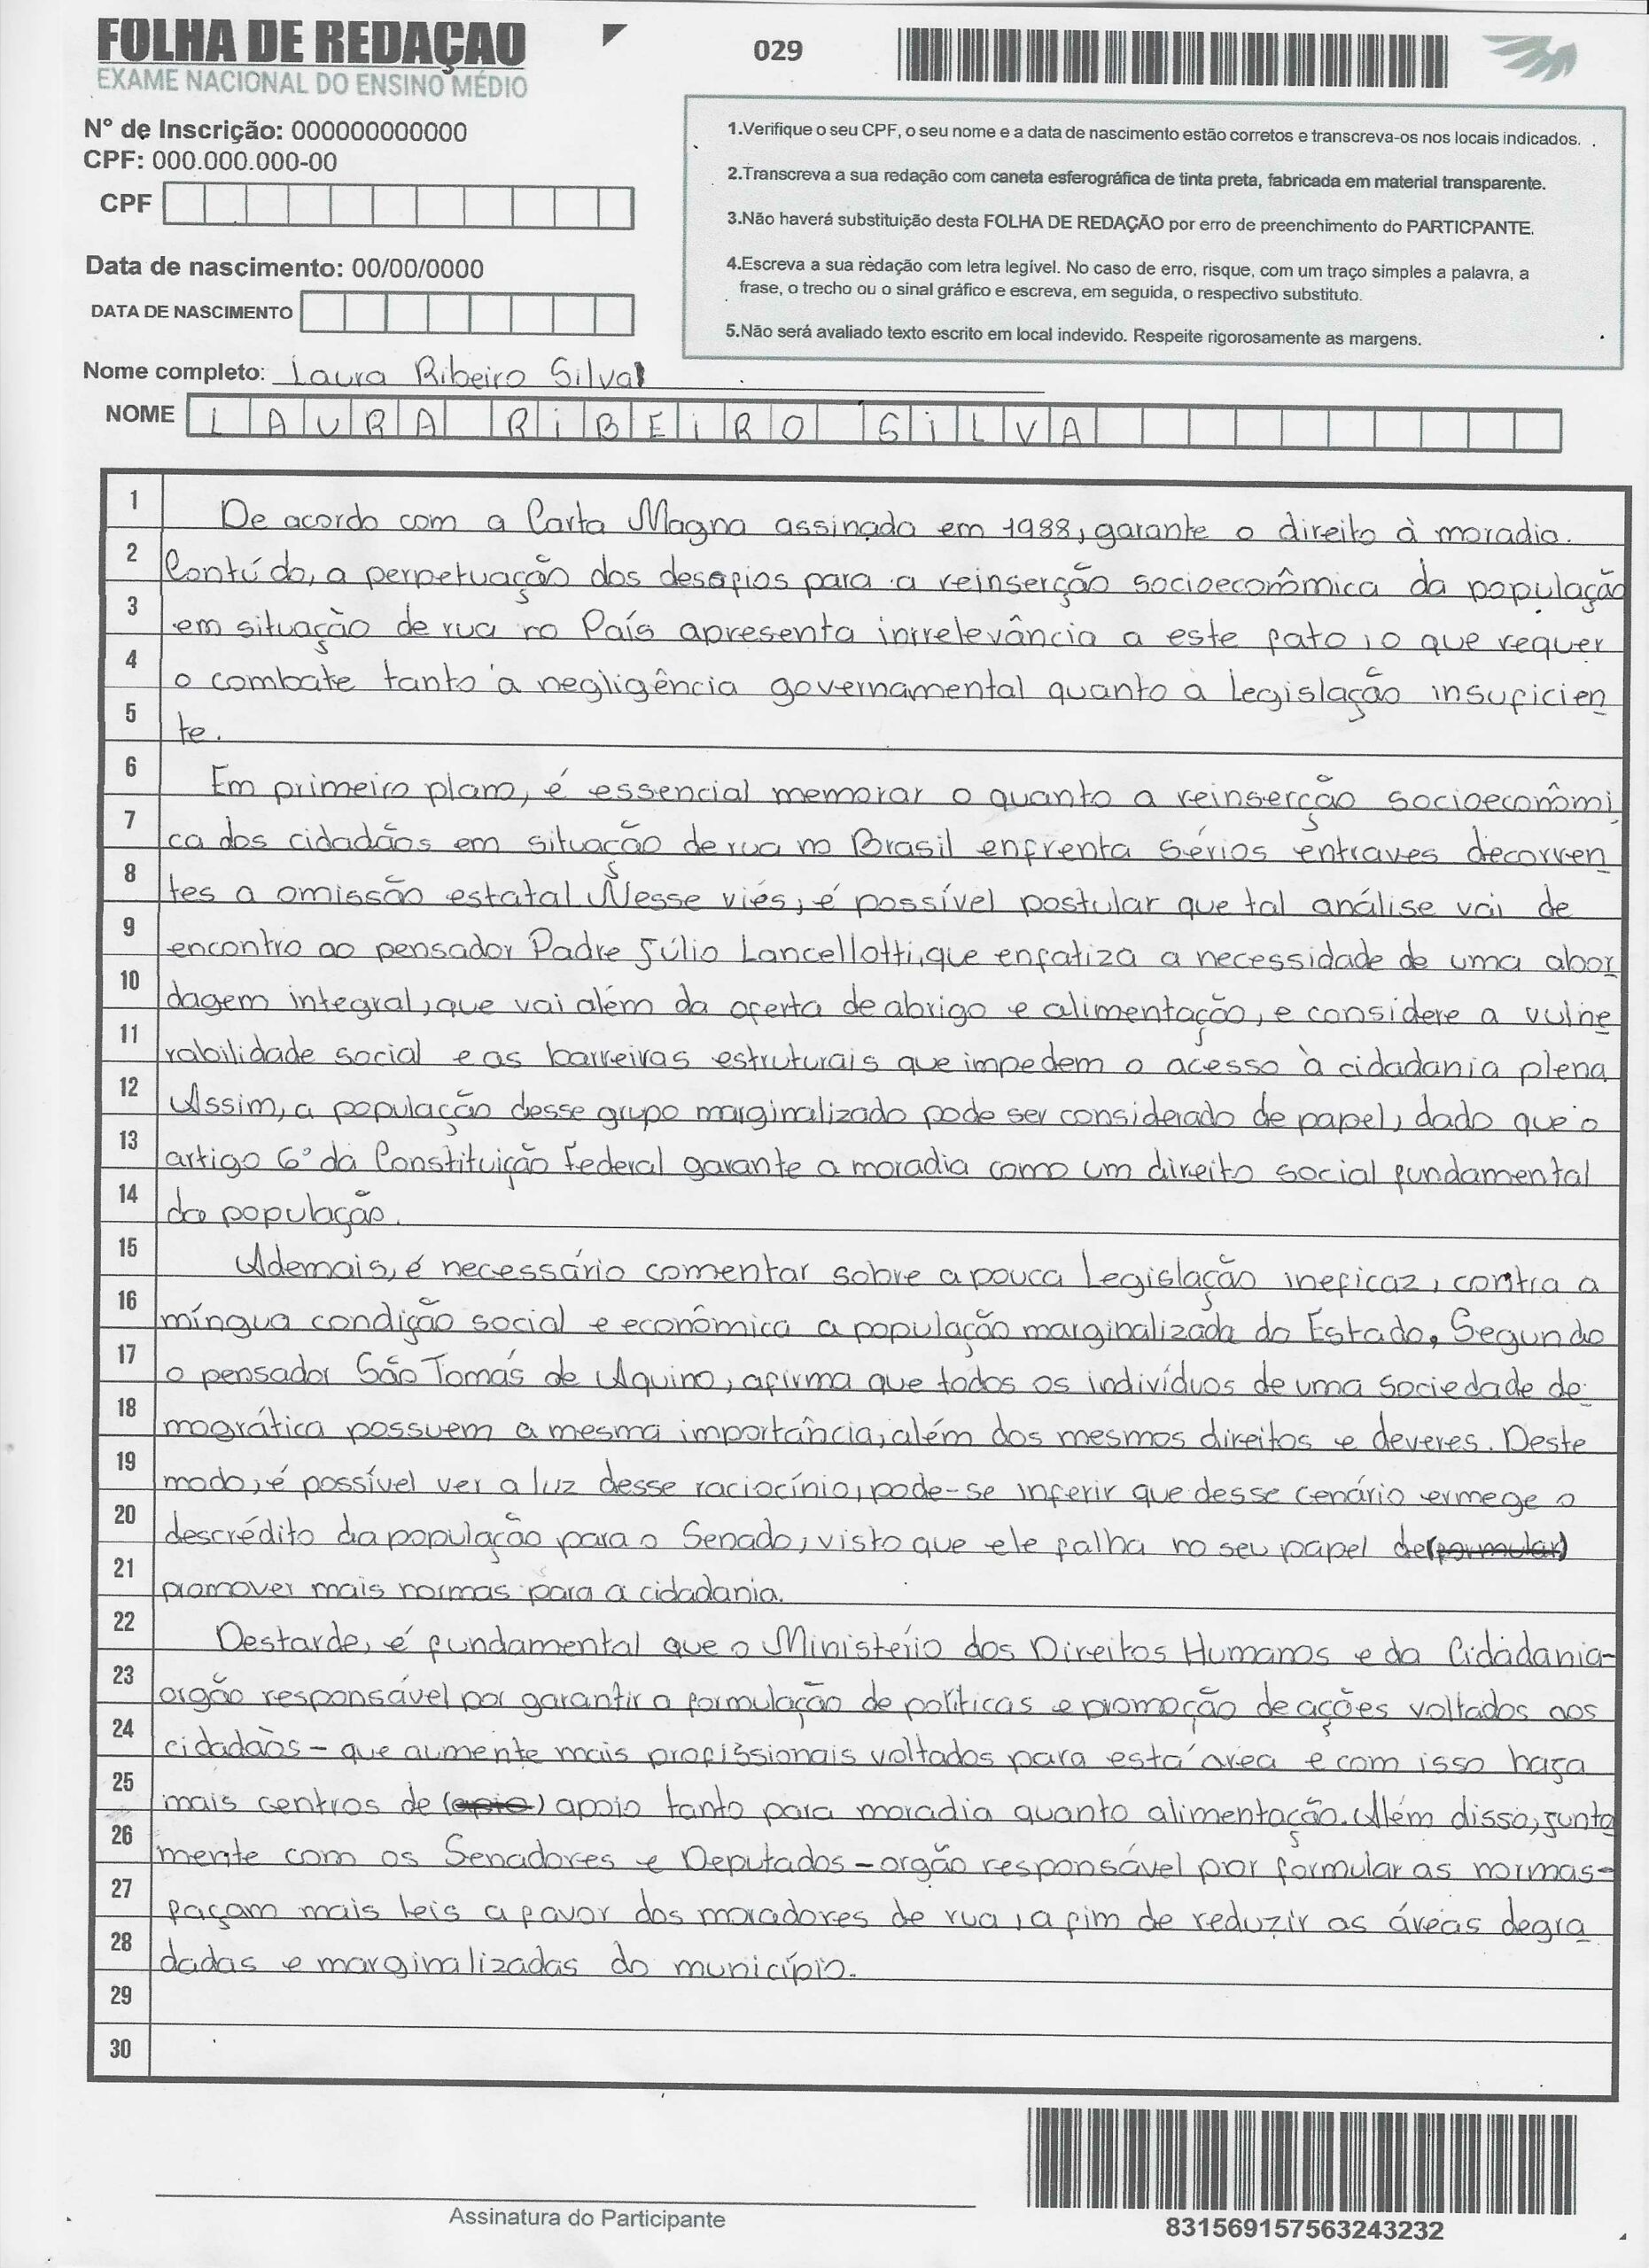 FOLHA DE REDAÇAO
EXAME NACIONAL DO ENSINO MÉDIO
029
N° de Inscrição: 000000000000
CPF: 000.000.000-00
CPF
Data de nascimento: 00/00/0000
DATA DE NASCIMENTO
1.Verifique o seu CPF, o seu nome e a data de nascimento estão corretos e transcreva-os nos locais indicados.
2.Transcreva a sua redação com caneta esferográfica de tinta preta, fabricada em material transparente.
3.Não haverá substituição desta FOLHA DE REDAÇÃO por erro de preenchimento do PARTICPANTE.
4.Escreva a sua redação com letra legível. No caso de erro, risque, com um traço simples a palavra, a
frase, o trecho ou o sinal gráfico e escreva, em seguida, o respectivo substituto.
5.Não será avaliado texto escrito em local indevido. Respeite rigorosamente as margens.
Nome completo: Laura Ribeiro Silva
NOME LAURA RIBEIRO SILVA
1 De acordo com a Carta Magna assinada em 1988, garante o direito à moradia.
2 Contúdo, a perpetuação dos desafios para a reinserção socioeconômica da população
3 em situação de rua no País apresenta inrrelevância a este fato, o que requer
4 o combate tanto à negligência governamental quanto à legislação insuficien
5 te.
6 Em primeiro plano, é essencial memorar o quanto a reinserção socioeconômi
7 ca dos cidadãos em situação de rua no Brasil enfrenta sérios entraves decorren
8 tes a omissão estatal. Nesse viés, é possível postular que tal análise vai de
9 encontro ao pensador Padre Júlio Lancellotti, que enfatiza a necessidade de uma abor
10 dagem integral, que vai além da oferta de abrigo e alimentação, e considere a vulne
11 rabilidade social e as barreiras estruturais que impedem o acesso à cidadania plena
12 Assim, a população desse grupo marginalizado pode ser considerado de papel, dado que o
13 artigo 6° da Constituição Federal garante a moradia como um direito social fundamental
14 da população.
15 Ademais, é necessário comentar sobre a pouca legislação ineficaz, contra a
16 míngua condição social e econômica a população marginalizada do Estado. Segundo
17 o pensador São Tomás de Aquino, afirma que todos os indivíduos de uma sociedade de
18 mogrática possuem a mesma importância, além dos mesmos direitos e deveres. Deste
19 modo, é possível ver a luz desse raciocínio, pode-se inferir que desse cenário ermege o
20 descrédito da população para o Senado, visto que ele falha no seu papel de (formular)
21 promover mais normas para a cidadania.
22 Destarde, é fundamental que o Ministério dos Direitos Humanos e da Cidadania-
23 orgão responsável por garantir a formulação de políticas e promoção de ações voltados aos
24 cidadãos - que aumente mais profissionais voltados para está área e com isso haça
25 mais centros de (apio) apoio tanto para moradia quanto alimentação. Além disso, junta
26 mente com os Senadores e Deputados - orgão responsável por formular as normas-
27 façam mais leis a favor dos moradores de rua, a fim de reduzir as áreas degra
28 dadas e marginalizadas do município.
29
30
Assinatura do Participante
831569157563243232